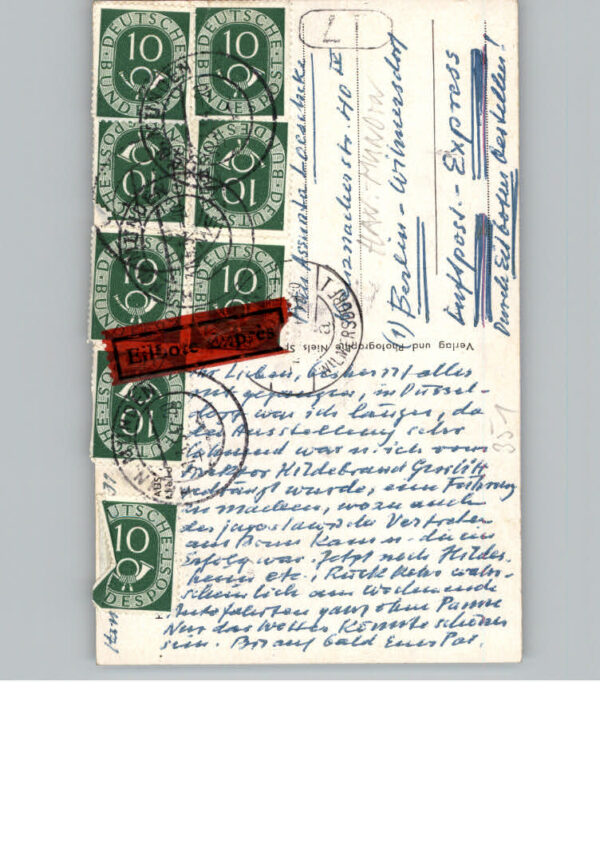 DEUTSCHE BUNDESPOST
10
DEUTSCHE BUNDESPOST
10
DEUTSCHE BUNDESPOST
10
DEUTSCHE BUNDESPOST
10
DEUTSCHE BUNDESPOST
10
DEUTSCHE BUNDESPOST
10
10
10
DESPOST
Eilbote Exprès
MÜNDEN
WILMERSDORF 1
a
HAN.-MÜNDEN
str. 40 IV
(1) Berlin-Wilmersdorf
Luftpost.-Express
Durch Eilboten bestellen!
Verlag und Photographie Niels
351
Lieben, bisher ist alles
gut gegangen, in Düssel-
dorf war ich länger, da
die Ausstellung sehr
lohnend war u. ich vom
Hildebrand Gurlitt
gedrängt wurde, eine Führung
zu machen, wozu auch
der jugoslawische Vertreter
aus Bonn kam u. die ein
Erfolg war. Jetzt noch Hildes-
heim etc., Rückkehr wahr-
scheinlich am Wochenende
Autofahrten ganz ohne Panne
Nur das Wetter könnte schöner
sein. Bis auf bald Euer